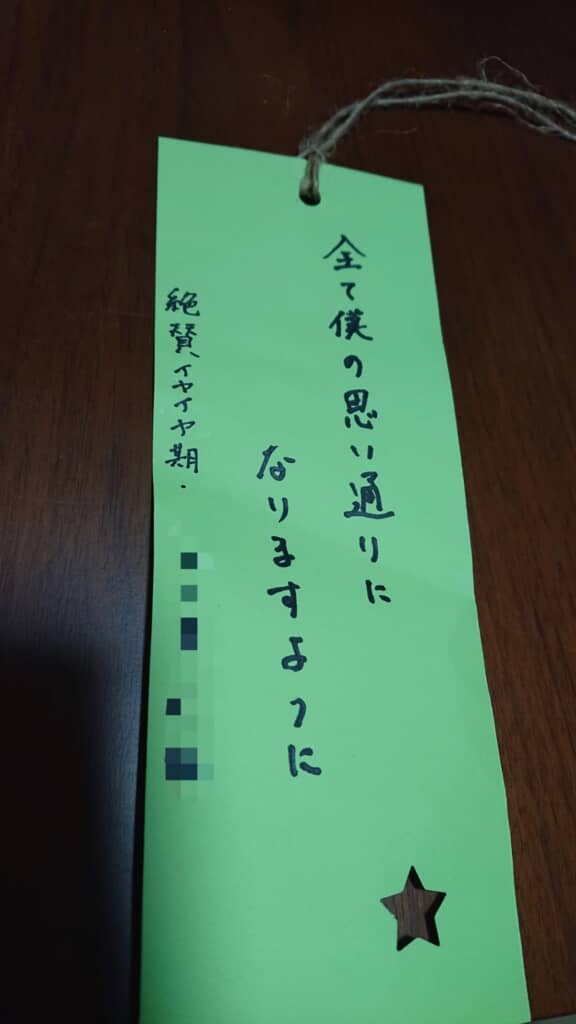 全て僕の思い通りに
なりますように
絶賛、イヤイヤ期・